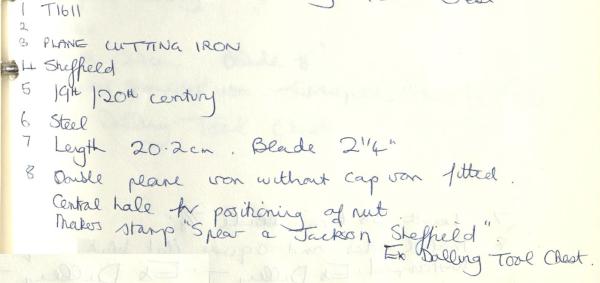 1 T1611
2
3 PLANE CUTTING IRON
4 Sheffield
5 19th /20th century
6 Steel
7 Length 20.2cm . Blade 2 1/4"
8 Double plane iron without cap iron fitted .
Central hole for positioning of nut
Makers stamp "Spear & Jackson Sheffield" .
Ex Dalling Tool Chest .